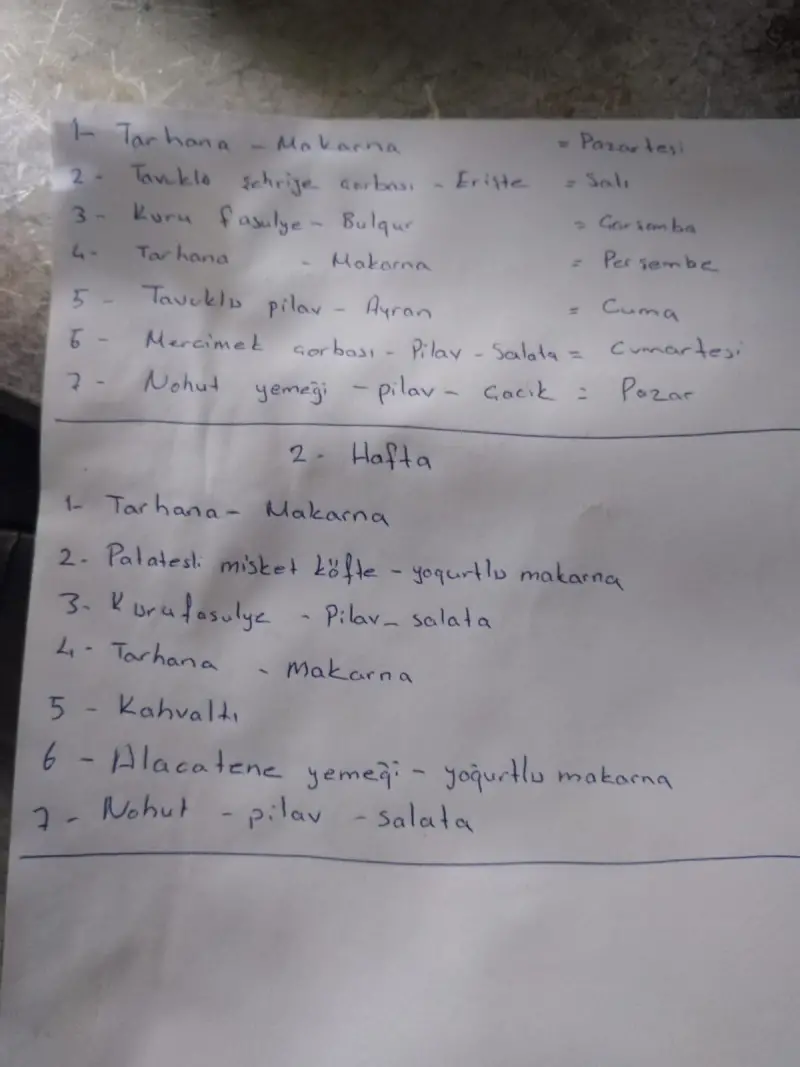 1- Tarhana - Makarna = Pazartesi
2- Tavuklu şehriye çorbası - Erişte = Salı
3- Kuru fasulye - Bulgur = Çarşamba
4- Tarhana - Makarna = Perşembe
5- Tavuklu pilav - Ayran = Cuma
6- Mercimek çorbası - Pilav - Salata = Cumartesi
7- Nohut yemeği - pilav - Cacık = Pazar
2- Hafta
1- Tarhana - Makarna
2- Patatesli misket köfte - yogurtlu makarna
3- Kurufasulye - Pilav - salata
4- Tarhana - Makarna
5- Kahvaltı
6- Alacatene yemeği - yoğurtlu makarna
7- Nohut - pilav - salata